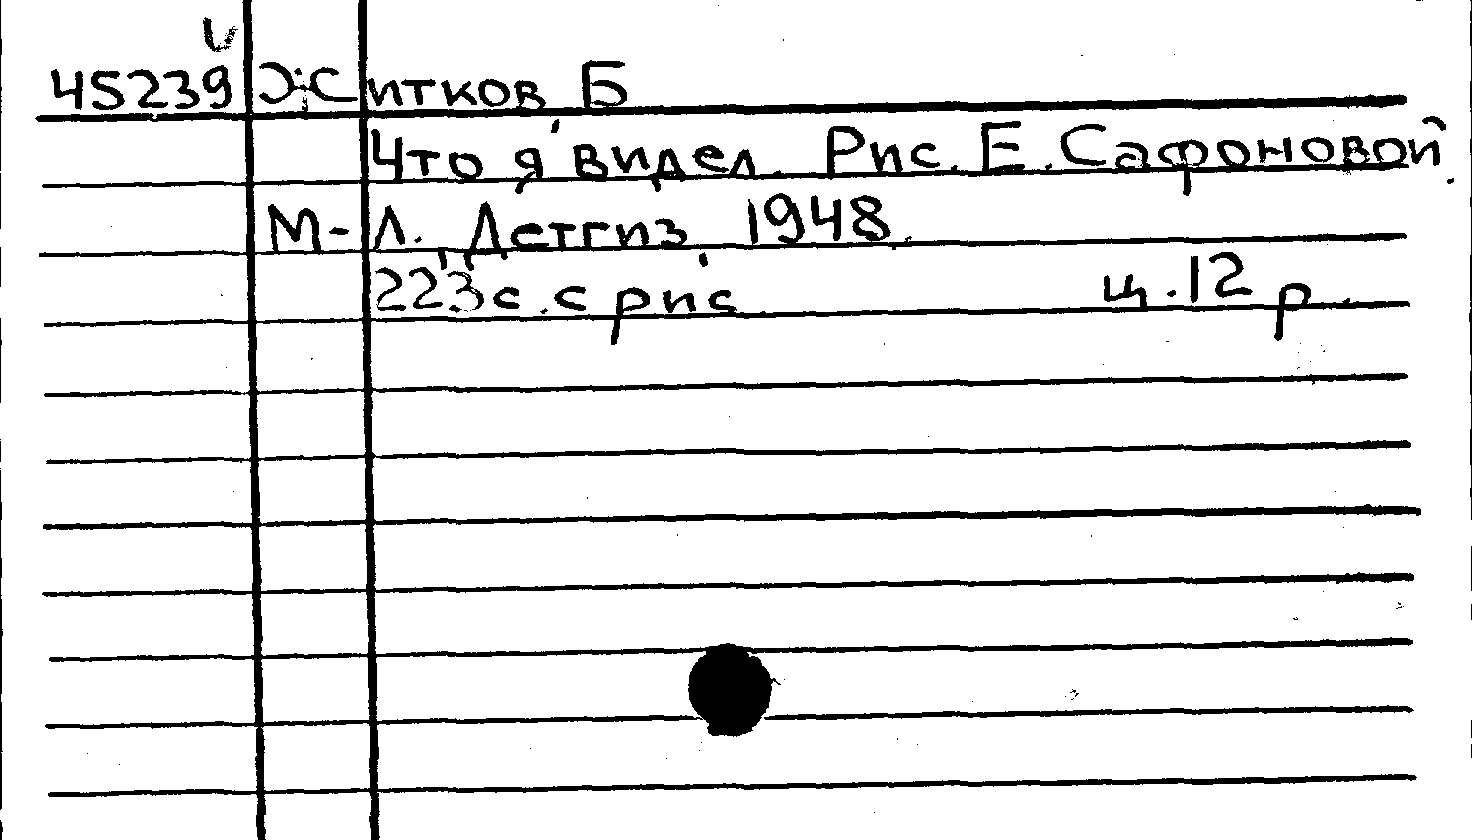 45239 Житков Б
Что я видел. Рис. Е. Сафоновой.
М-Л. "Детгиз" 1948.
223 с. с рис. ц. 12 р.